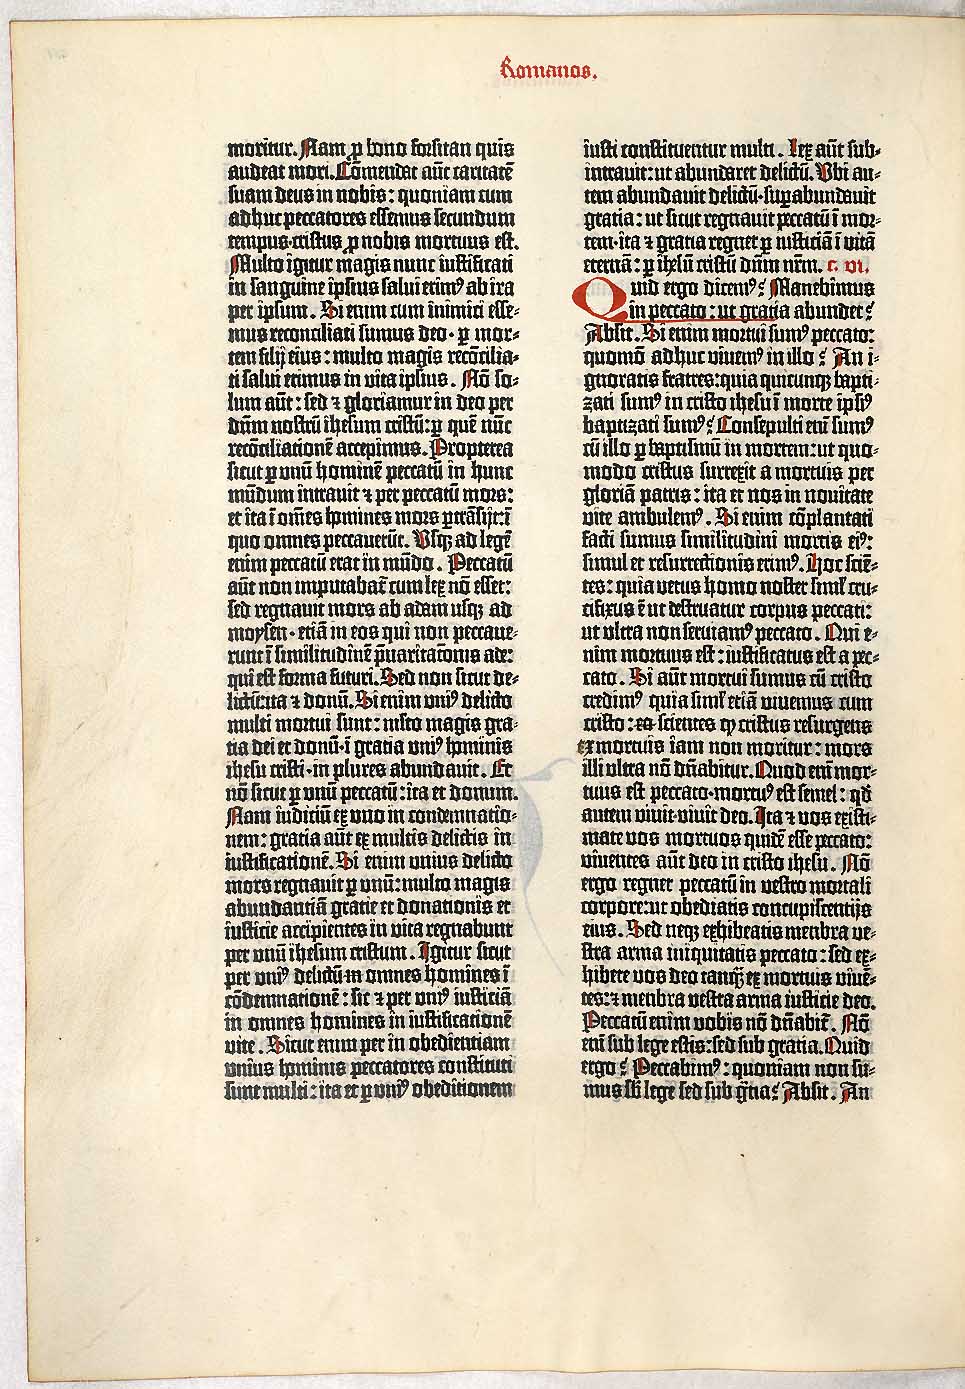 Romanos.
moritur. Nam ꝓ bono forsitan quis
audeat mori. Cōmendat aūt caritatē
suam deus in nobis: quoniam cum
adhuc peccatores essemus secundum
tempus·cristus ꝓ nobis mortuus est.
Multo igitur magis nunc iustificati
in sanguine ipsius salui erimꝰ ab ira
per ipsum. Si enim cum inimici esse-
mus reconciliati sumus deo· ꝑ mor-
tem filij eius: multo magis recōcilia-
ti salui erimus in vita ipsius. Nō so-
lum aūt: sed ⁊ gloriamur in deo per
dn̄m nostrū ihesum cristū: ꝑ quē nūc
recōciliationē accepimus. Propterea
sicut ꝑ vnū hominē peccatū in hunc
mūdum intrauit ⁊ per peccatū mors:
et ita ī om̄es homines mors ꝑtrāsijt: ī
quo omnes peccauerūt. Vsqꝫ ad legē
enim peccatū erat in mūdo. Peccatū
aūt non imputabat̄ cum lex nō esset:
sed regnauit mors ab adam usqꝫ ad
moysen· etiā in eos qui non peccaue-
runt ī similitudinē p̄uaricatōnis ade:
qui est forma futuri. Sed non sicut de-
lictū: ita ⁊ donū. Si enim vniꝰ delicto
multi mortui sunt: mlto magis gra-
tia dei et donū·ī gratia vniꝰ hominis
ihesu cristi·in plures abundauit. Et
nō sicut ꝑ vnū peccatū: ita et donum.
Nam iudiciū ex vno in condemnatio-
nem: gratia aūt ex multis delictis in
iustificationē. Si enim vnius delicto
mors regnauit ꝑ vnū: multo magis
abundantiā gratie et donationis et
iusticie accipientes in vita regnabunt
per vnū ihesum cristum. Igitur sicut
per vniꝰ delictū in omnes homines ī
cōdemnationē: sic ⁊ per vniꝰ iusticiā
in omnes homines in iustificationē
vite. Sicut enim per in obedientiam
vnius hominis peccatores constituti
sunt multi: ita et ꝑ vniꝰ obeditionem
iusti constituentur multi. Lex aūt sub-
intrauit: ut abundaret delictū. Vbi au-
tem abundauit delictū·suꝑabundauit
gratia: ut sicut regnauit peccatū ī mor-
tem·ita ⁊ gratia regnet ꝑ iusticiā ī vitā
eternā: ꝑ ihesū cristū dn̄m nr̄m. c. vi.
Quid ergo dicemꝰ? Manebimus
in peccato: ut gratia abundet?
Absit. Si enim mortui sumꝰ peccato:
quomō adhuc viuemꝰ in illo? An i-
gnoratis fratres: quia quicunqꝫ bapti-
zati sumꝰ in cristo ihesu ī morte ipsiꝰ
baptizati sumꝰ? Consepulti eni sumꝰ
cū illo ꝑ baptismū in mortem: ut quo-
modo cristus surrexit a mortuis per
gloriā patris: ita et nos in nouitate
vite ambulemꝰ. Si enim cōplantati
facti sumus similitudini mortis eiꝰ:
simul et resurrectionis erimꝰ. Hoc sciē-
tes: quia vetus homo noster siml̄ cru-
cifixus ē ut destruatur corpus peccati:
ut vltra non seruiamꝰ peccato. Qui e-
nim mortuus est: iustificatus est a pec-
cato. Si aūt mortui sumus cū cristo
credimꝰ quia siml̄ etiā viuemus cum
cristo: scientes ꝙ cristus resurgens
ex mortuis iam non moritur: mors
illi vltra nō dn̄abitur. Quod enī mor-
tuus est peccato·mortuꝰ est semel: qd̄
autem viuit·viuit deo. Ita ⁊ vos existi-
mate vos mortuos quidē esse peccato:
viuentes aūt deo in cristo ihesu. Nō
ergo regnet peccatū in vestro mortali
corpore: ut obediatis concupiscentijs
eius. Sed neqꝫ exhibeatis menbra ve-
stra arma iniquitatis peccato: sed ex-
hibete vos deo tanqꝫ ex mortuis viuē-
tes: ⁊ menbra vestra arma iusticie deo.
Peccatū enim vobis nō dn̄abit̄. Nō
eni sub lege estis: sed sub gratia. Quid
ergo? Peccabimꝰ: quoniam non su-
mus sb̄ lege sed sub gr̄tia? Absit. An